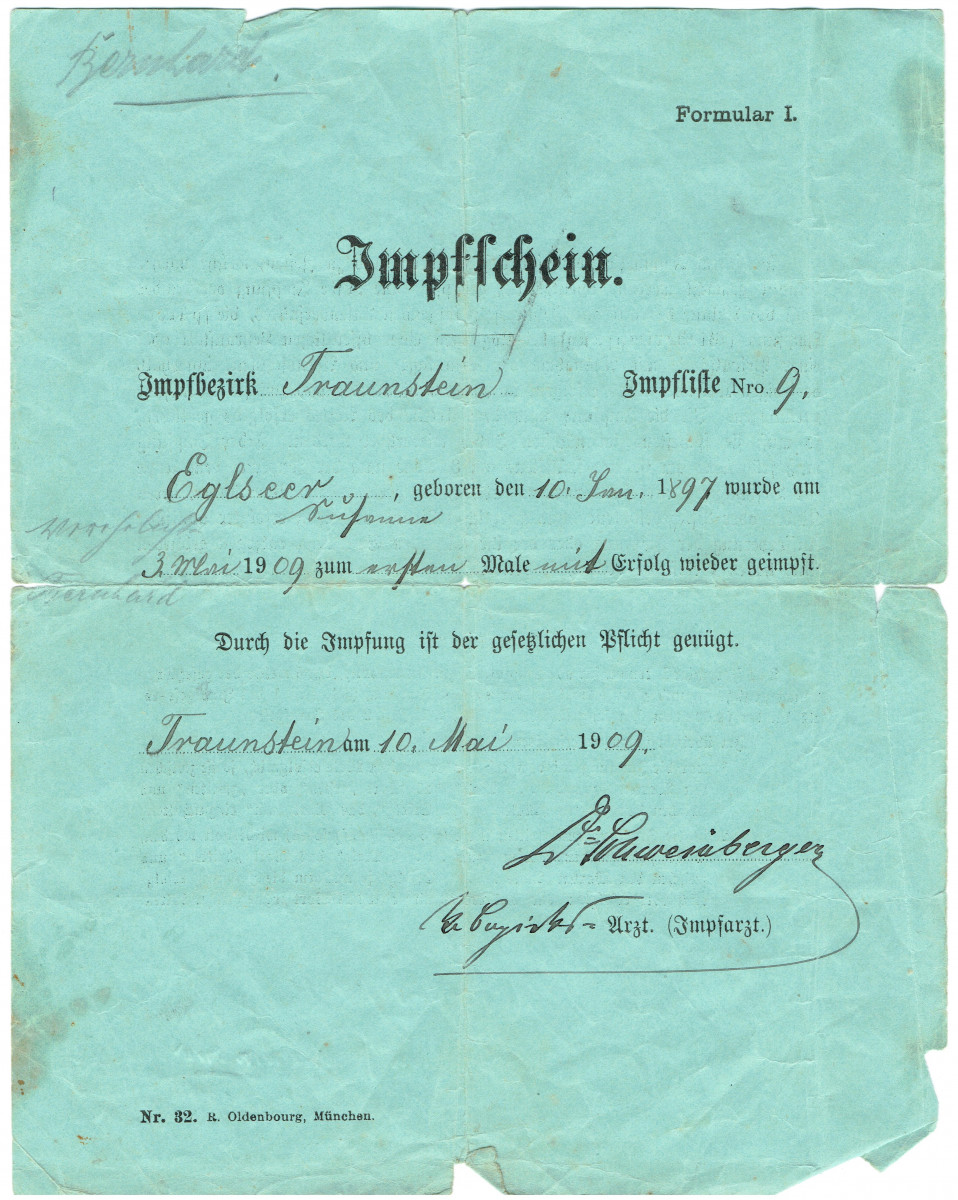 Bernhard.
Formular I.
Impfschein.
Impfbezirk Traunstein Impfliste Nro 9.
Eglseer, geboren den 10. Jan. 1897 wurde am
Susanna
Verehelichte
3. Mai 1909 zum ersten Male mit Erfolg wieder geimpft.
Bernhard
Durch die Impfung ist der gesetzlichen Pflicht genügt.
Traunstein am 10. Mai 1909.
Dr.
k. Bezirks-Arzt. (Impfarzt.)
Nr. 32. R. Oldenbourg, München.